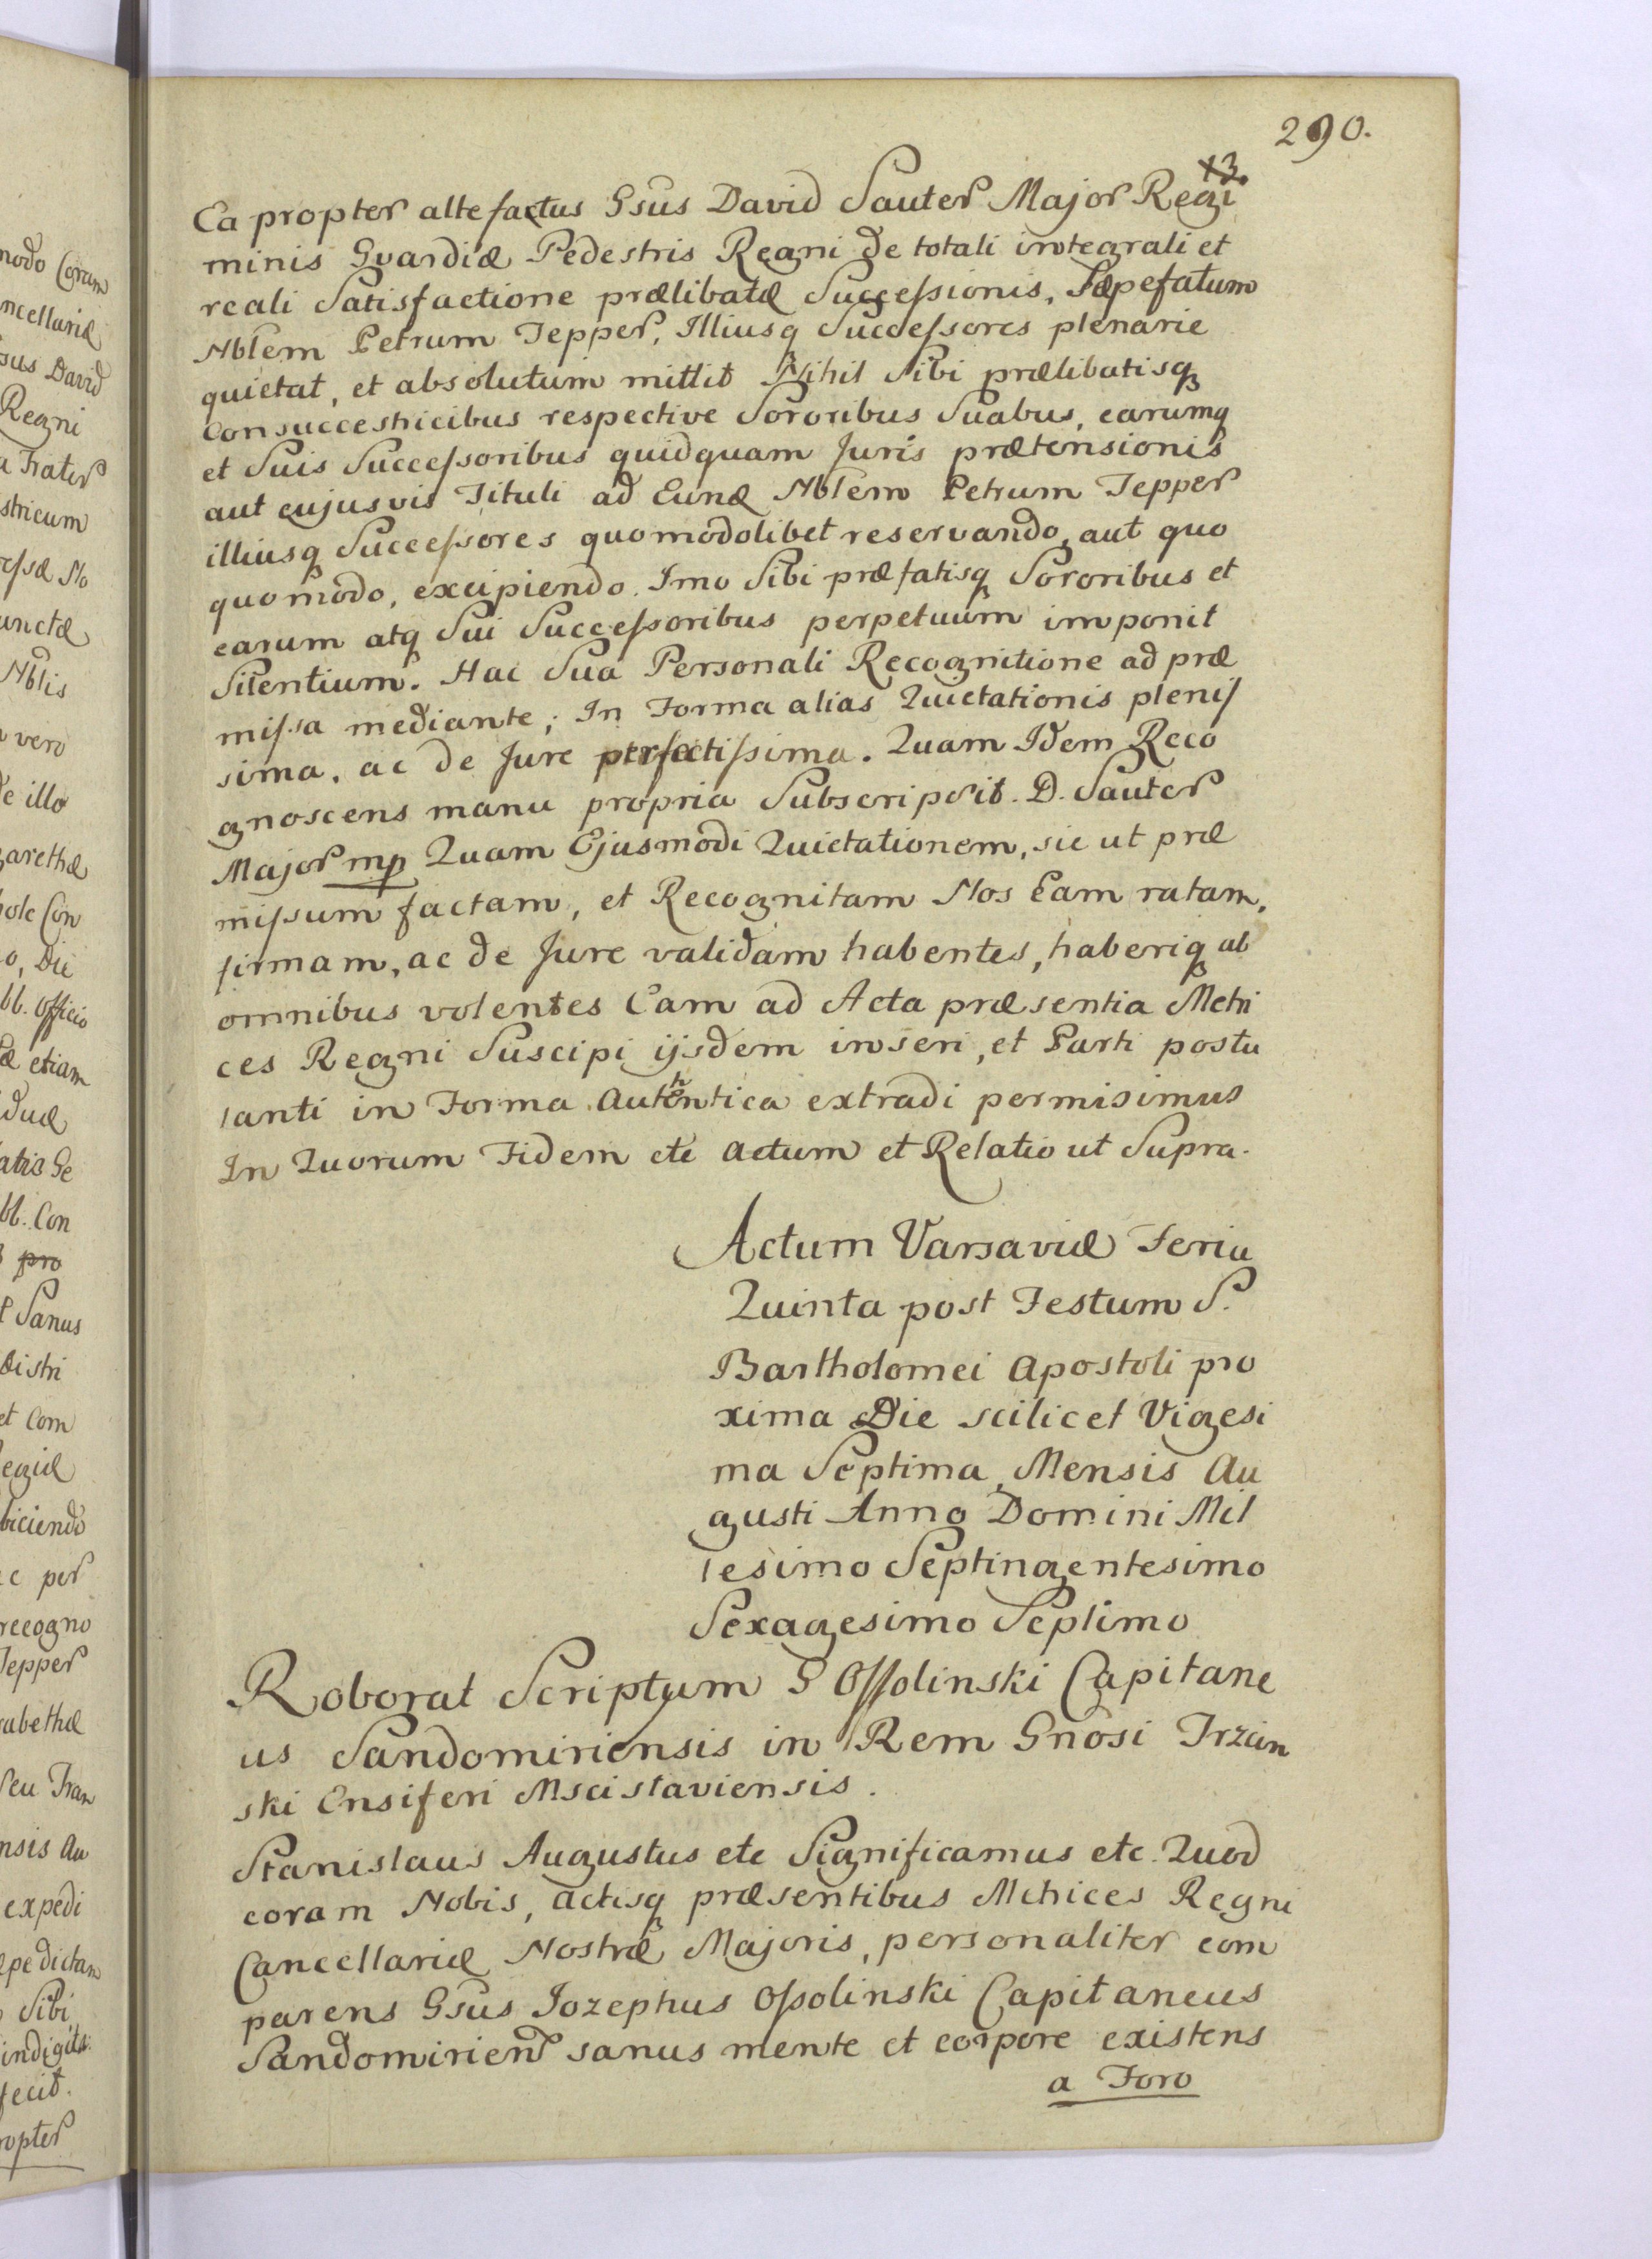 290.
13.
Ea propter altefactus Gsus David Sauter Major Regi
minis Gvardiæ Pedestris Regni de totali integrali et
reali Satisfactione prælibatæ Successionis, Sæpefatum
Nblem Petrum Tepper, Illiusq Successores plenarie
quietat, et absolutum mittit Nihil Sibi prælibatisq
Consuccestricibus respective Sororibus Suabus, earumq
et Suis Successoribus quidquam Juris prætensionis
aut cujusvis Tituli ad Eund Nblem Petrum Tepper
illiusq Successores quomodolibet reservando, aut quo
quomodo, excipiendo. Imo Sibi præfatisq Sororibus et
earum atq Sui Successoribus perpetuum imponit
Silentium. Hac Sua Personali Recognitione ad præ
missa mediante; In Forma alias Quietationis plenis
sima, ac de Jure perfectissima. Quam Idem Reco
gnoscens manu propria Subscripsit. D. Sauter
Major mp Quam Ejusmodi Quietationem, sic ut præ
missum factam, et Recognitam Nos Eam ratam,
firmam, ac de Jure validam habentes, haberiq ab
omnibus volentes Eam ad Acta præsentia Metri
ces Regni Suscipi ijsdem inseri, et Parti postu
lanti in Forma Authentica extradi permisimus
In Quorum Fidem etc Actum et Relatio ut Supra.
Actum Varsaviæ Feria
Quinta post Festum S.
Bartholomei Apostoli pro
xima Die scilicet Vigesi
ma Septima Mensis Au
gusti Anno Domini Mil
lesimo Septingentesimo
Sexagesimo Septimo
Roborat Scriptum G Ossolinski Capitane
us Sandomiriensis in Rem Gnosi Trzcin
ski Ensiferi Mscislaviensis.
Stanislaus Augustus etc Significamus etc. Quod
coram Nobis, Actisq præsentibus Metrices Regni
Cancellariæ Nostræ Majoris, personaliter com
parens Gsus Jozephus Ossolinski Capitaneus
Sandomirien sanus mente et corpore existens
a Foro